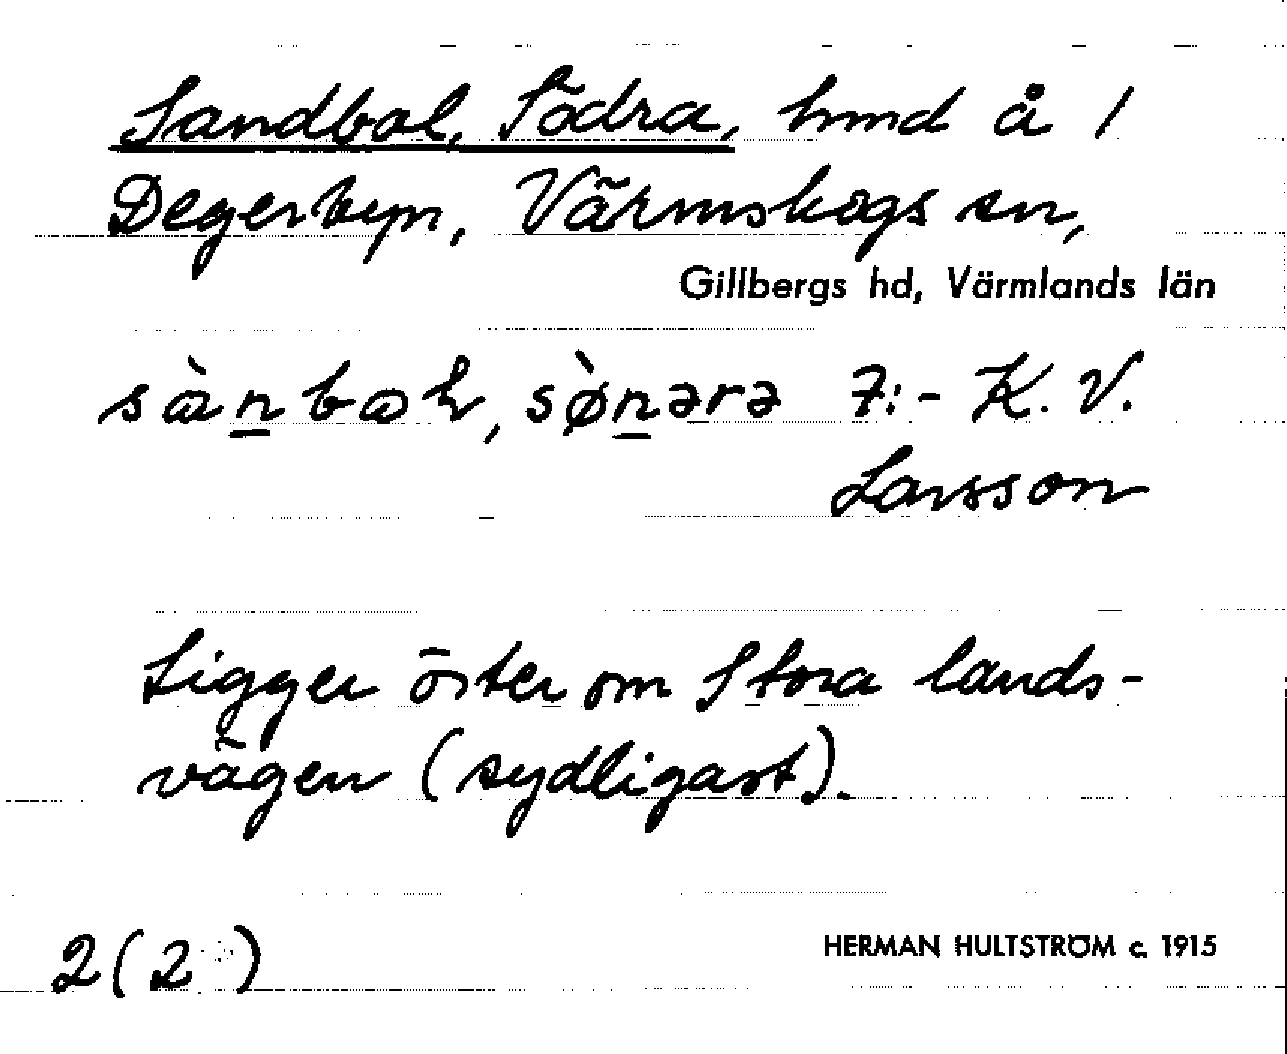 Sandbol, Södra, hmd å 1
Degerbyn, Värmskogs sn,
Gillbergs hd, Värmlands län
sònərə 7:- K. V.
Larsson
Ligger öster om Stora lands-
vägen (sydligast).
2 (2 )
HERMAN HULTSTRÖM c. 1915